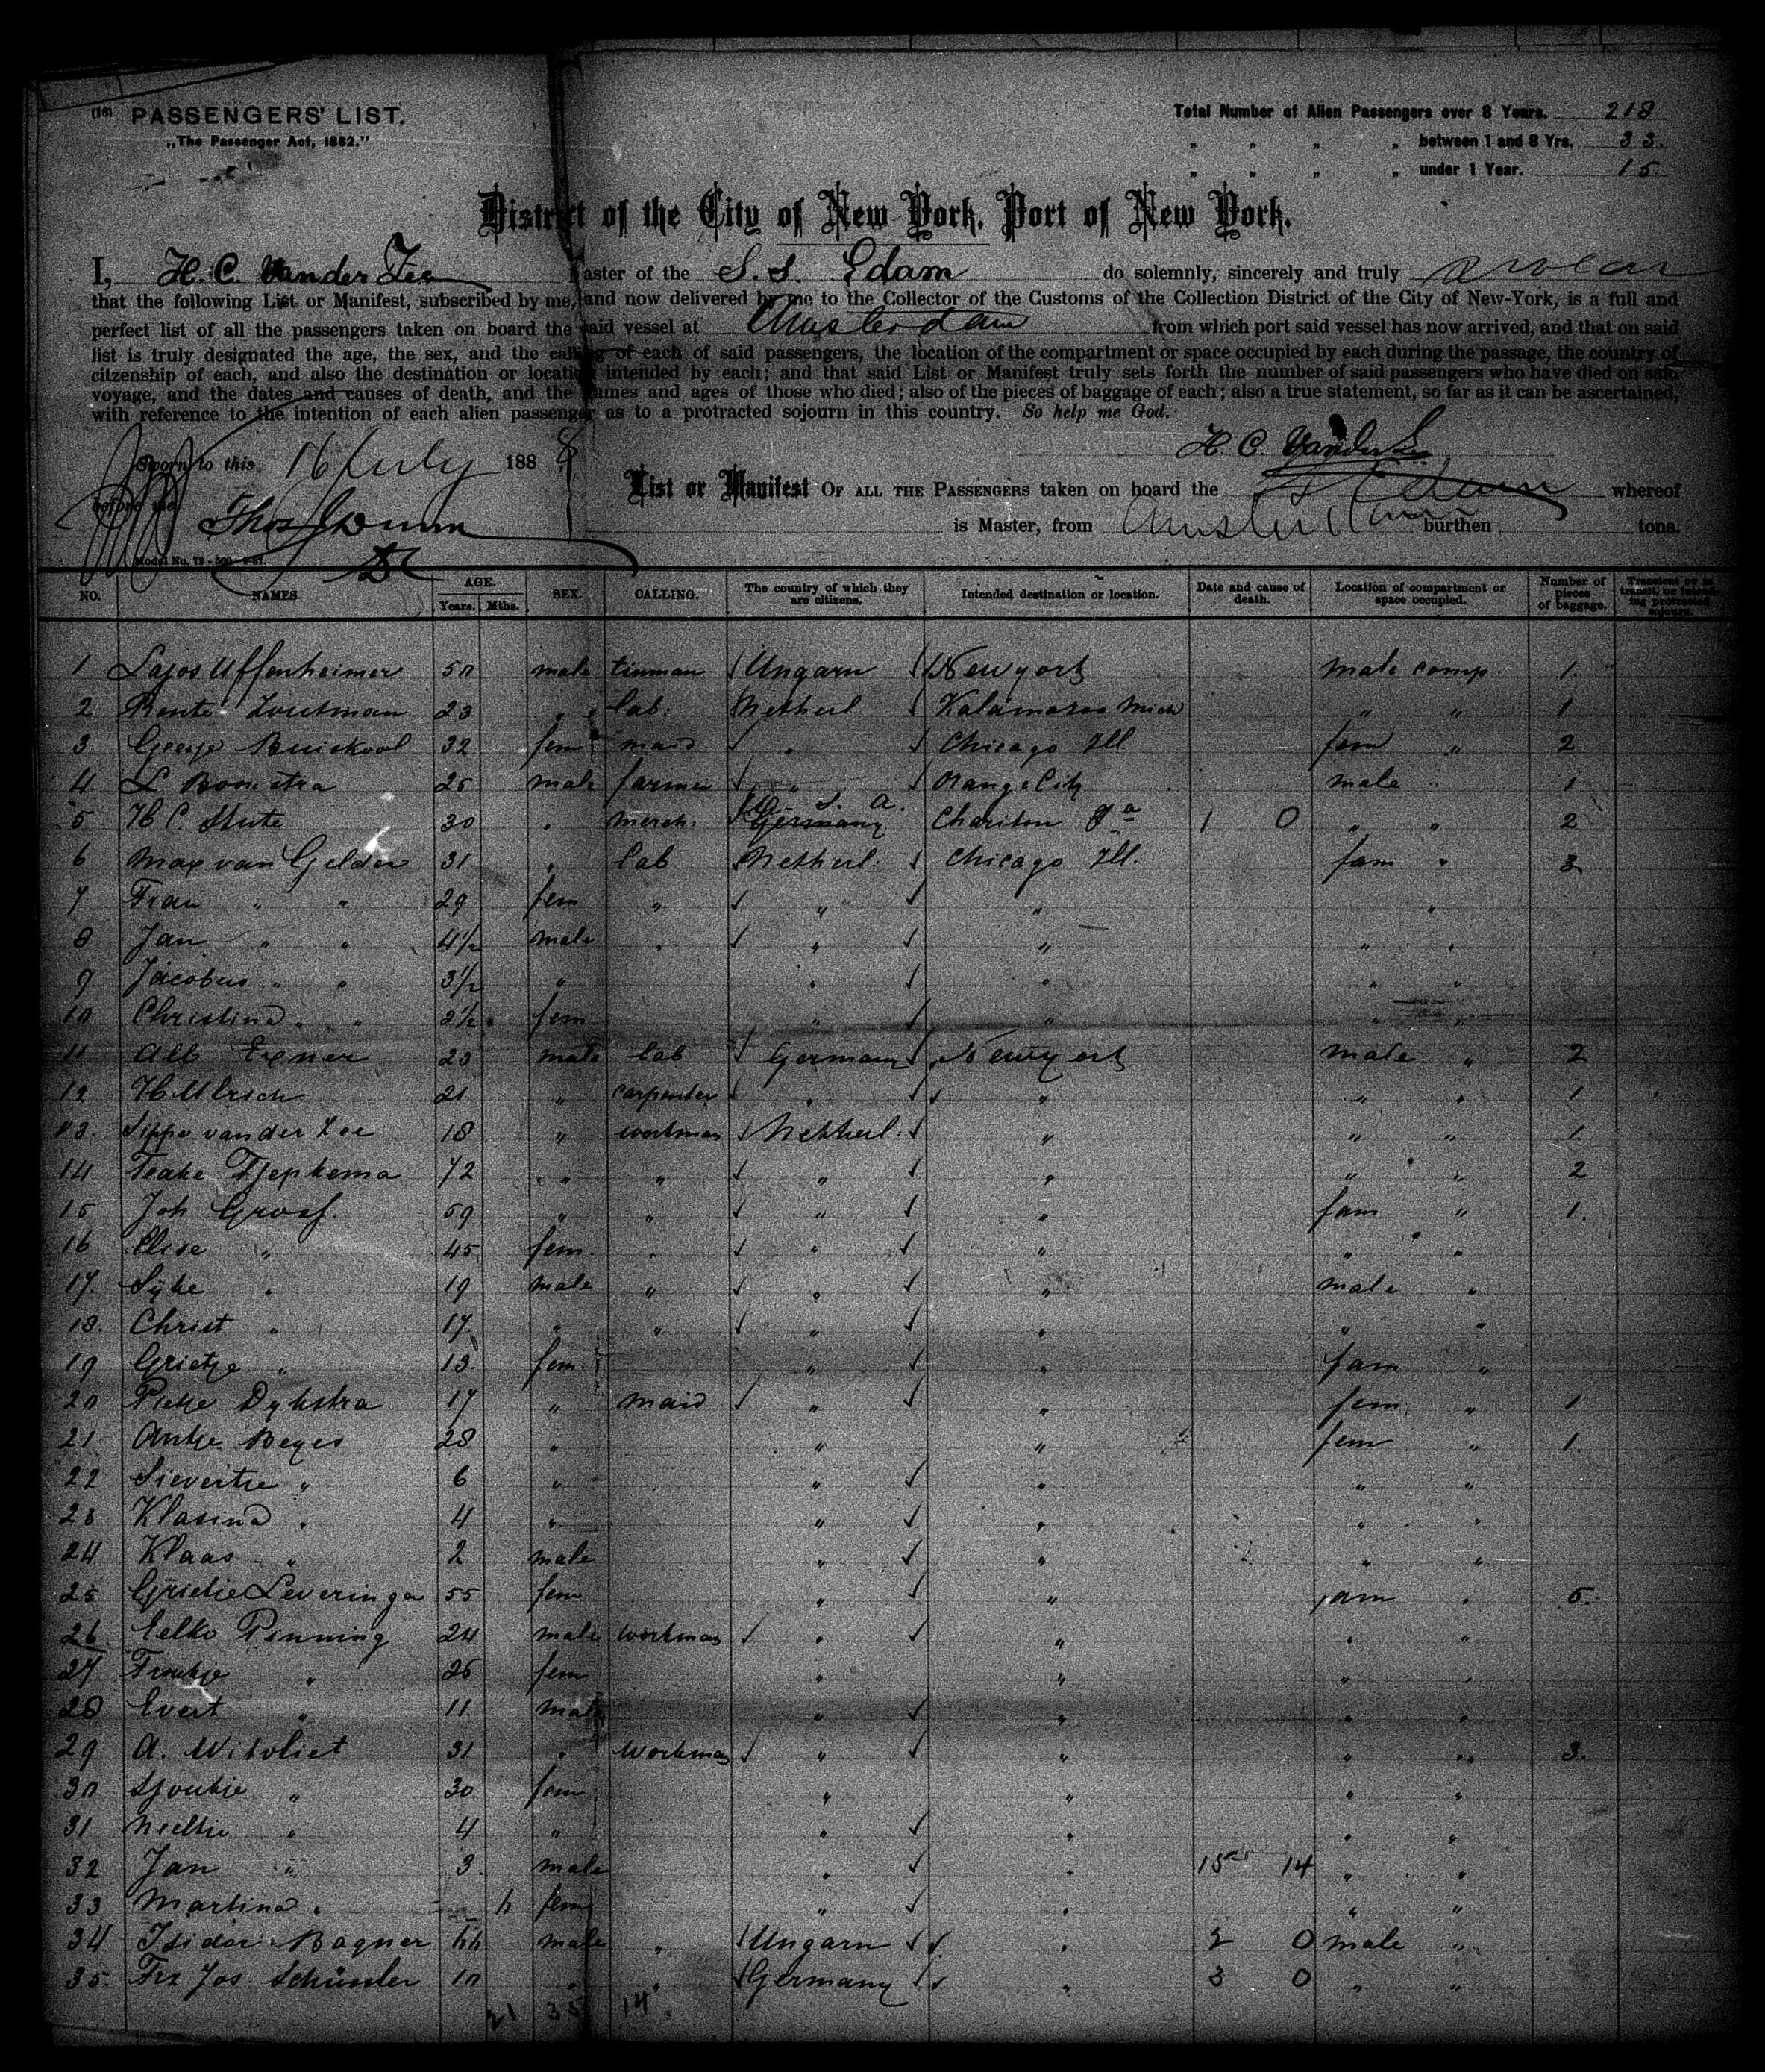 (18) PASSENGERS' LIST.
„The Passenger Act, 1882."
Total Number of Alien Passengers over 8 Years. 218
„ „ „ „ between 1 and 8 Yrs. 33.
„ „ „ „ under 1 Year. 15
District of the City of New York, Port of New York.
I, H. C. Van der Zee Master of the S. S. Edam do solemnly, sincerely and truly swear
that the following List or Manifest, subscribed by me, and now delivered by me to the Collector of the Customs of the Collection District of the City of New-York, is a full and
perfect list of all the passengers taken on board the said vessel at Amsterdam from which port said vessel has now arrived, and that on said
list is truly designated the age, the sex, and the calling of each of said passengers, the location of the compartment or space occupied by each during the passage, the country of
citzenship of each, and also the destination or location intended by each; and that said List or Manifest truly sets forth the number of said passengers who have died on said
voyage, and the dates and causes of death, and the names and ages of those who died; also of the pieces of baggage of each; also a true statement, so far as it can be ascertained,
with reference to the intention of each alien passenger as to a protracted sojourn in this country. So help me God.
H. C. Van der Zee
Sworn to this 16 July 1888
before me
Thos J Dunn
List or Manifest OF ALL THE PASSENGERS taken on board the S S Edam whereof
is Master, from Amsterdam burthen tons.
Model No. 72 - 500 - 9-87.
NO. NAMES. AGE. Years. Mths. SEX. CALLING. The country of which they are citizens. Intended destination or location. Date and cause of death. Location of compartment or space occupied. Number of pieces of baggage. Transient or in transit, or intending protracted sojourn.
1 Lajos Uffenheimer 50 male tinman Ungarn New york male comp. 1.
2 Bente Zoutman 23 „ lab. Netherl Kalamazoo Mich „ „ 1
3 Geesje Buiskool 32 fem maid „ Chicago Ill. fem „ 2
4 L Boonstra 25 male farmer „ Orange City male „ 1
5 H C. Stute 30 „ merch. Germany U. S. A. Chariton Ja 1 0 „ „ 2
6 Max van Gelder 31 „ lab Netherl. Chicago Ill. fam „ 3
7 Frau „ „ 29 fem „ „ „ „
8 Jan „ „ 4½ male „ „ „ „ „
9 Jacobus „ „ 3½ „ „ „ „ „
10 Christina „ „ 2½ fem „ „ „ „
11 Alb Exner 23 male lab Germany New york male „ 2
12 H Ulrich 21 „ carpenter „ „ „ „ 1
13. Sippe van der Zee 18 „ workman Netherl. „ „ „ 1.
14 Teake Tjepkema 42 „ „ „ „ „ „ 2
15 Joh Graaf. 59 „ „ „ „ fam „ 1.
16 Elise „ 45 fem. „ „ „ „ „
17. Sijke „ 19 male „ „ „ male „
18. Christ „ 17. „ „ „ „ „ „
19 Grietje „ 13. fem. „ „ fam „
20 Pietje Dykstra 17 „ maid „ „ fem „ 1
21. Antje Beyes 28 „ „ „ fem „ 1.
22 Sievertje „ 6 „ „ „ „ „
23 Klasina „ 4 „ „ „ „ „
24 Klaas „ 2 male „ „ „ „
25 Grietje Leveringa 55 fem „ „ fam „ 5.
26 Eelko Penning 24 male workman „ „ „ „
27 Froukje „ 26 fem „ „ „ „
28 Evert „ 11 male „ „ „ „
29 A. Witvliet 31 „ workman „ „ „ „ 3.
30 Sjoukje „ 30 fem „ „ „ „
31 Neeltje „ 4 „ „ „ „ „
32 Jan „ 3. male „ „ 14 „ „
33 Martina „ fem „ „ „ „
34 Isidor Bagner male „ Ungarn „ 2 0 male „
35. Frz Jos. Schüssler „ „ Germany „ 3 0 „ „